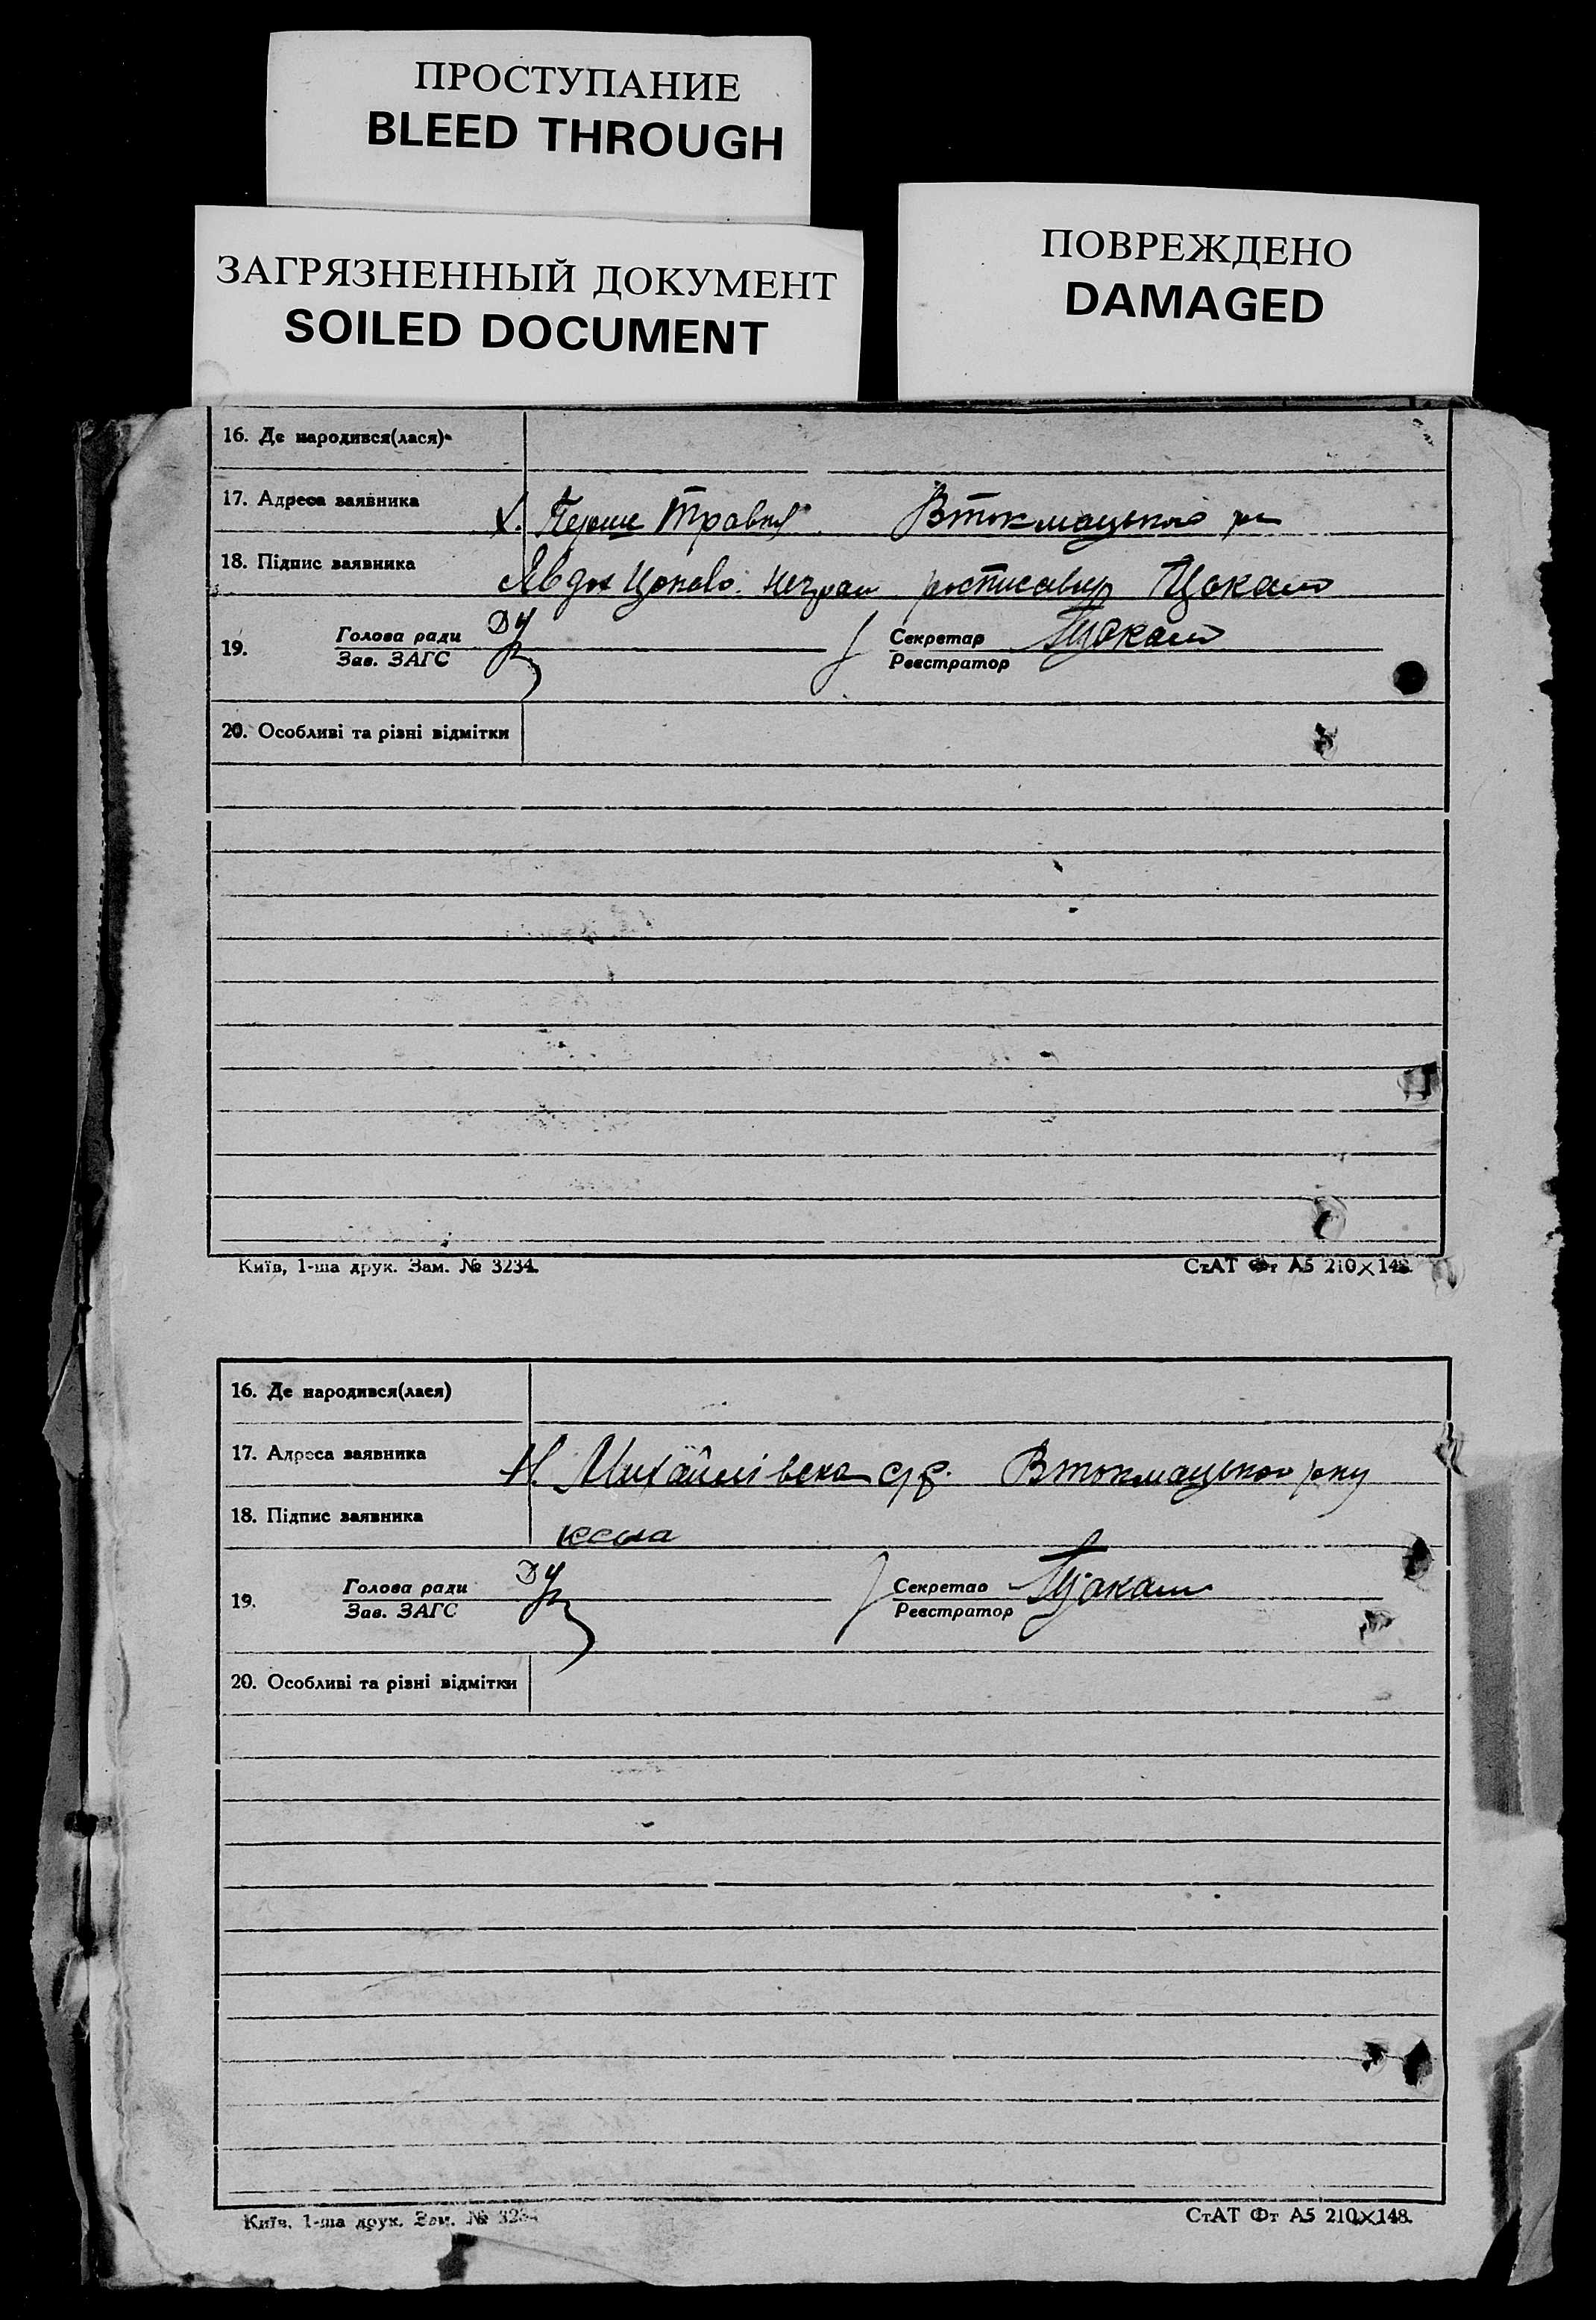 ПРОСТУПАНИЕ
BLEED THROUGH
ЗАГРЯЗНЕННЫЙ ДОКУМЕНТ
SOILED DOCUMENT
ПОВРЕЖДЕНО
DAMAGED
16. Де народився(лася)
17. Адреса заявника х. Перше Травня Втокмацького
18. Підпис заявника
19. Голова ради
Зав. ЗАГС
Секретар
Реєстратор
20. Особливі та різні відмітки
Київ, 1-ша друк. Зам. № 3234.
СтАТ Фт А5 210×148.
16. Де народився(лася)
17. Адреса заявника Н. Михайлівска с/р. Втокмацького р-ну
18. Підпис заявника
19. Голова ради
Зав. ЗАГС
Секретар
Реєстратор
20. Особливі та різні відмітки
Київ, 1-ша друк. Зам. № 3234
СтАТ Фт А5 210×148.